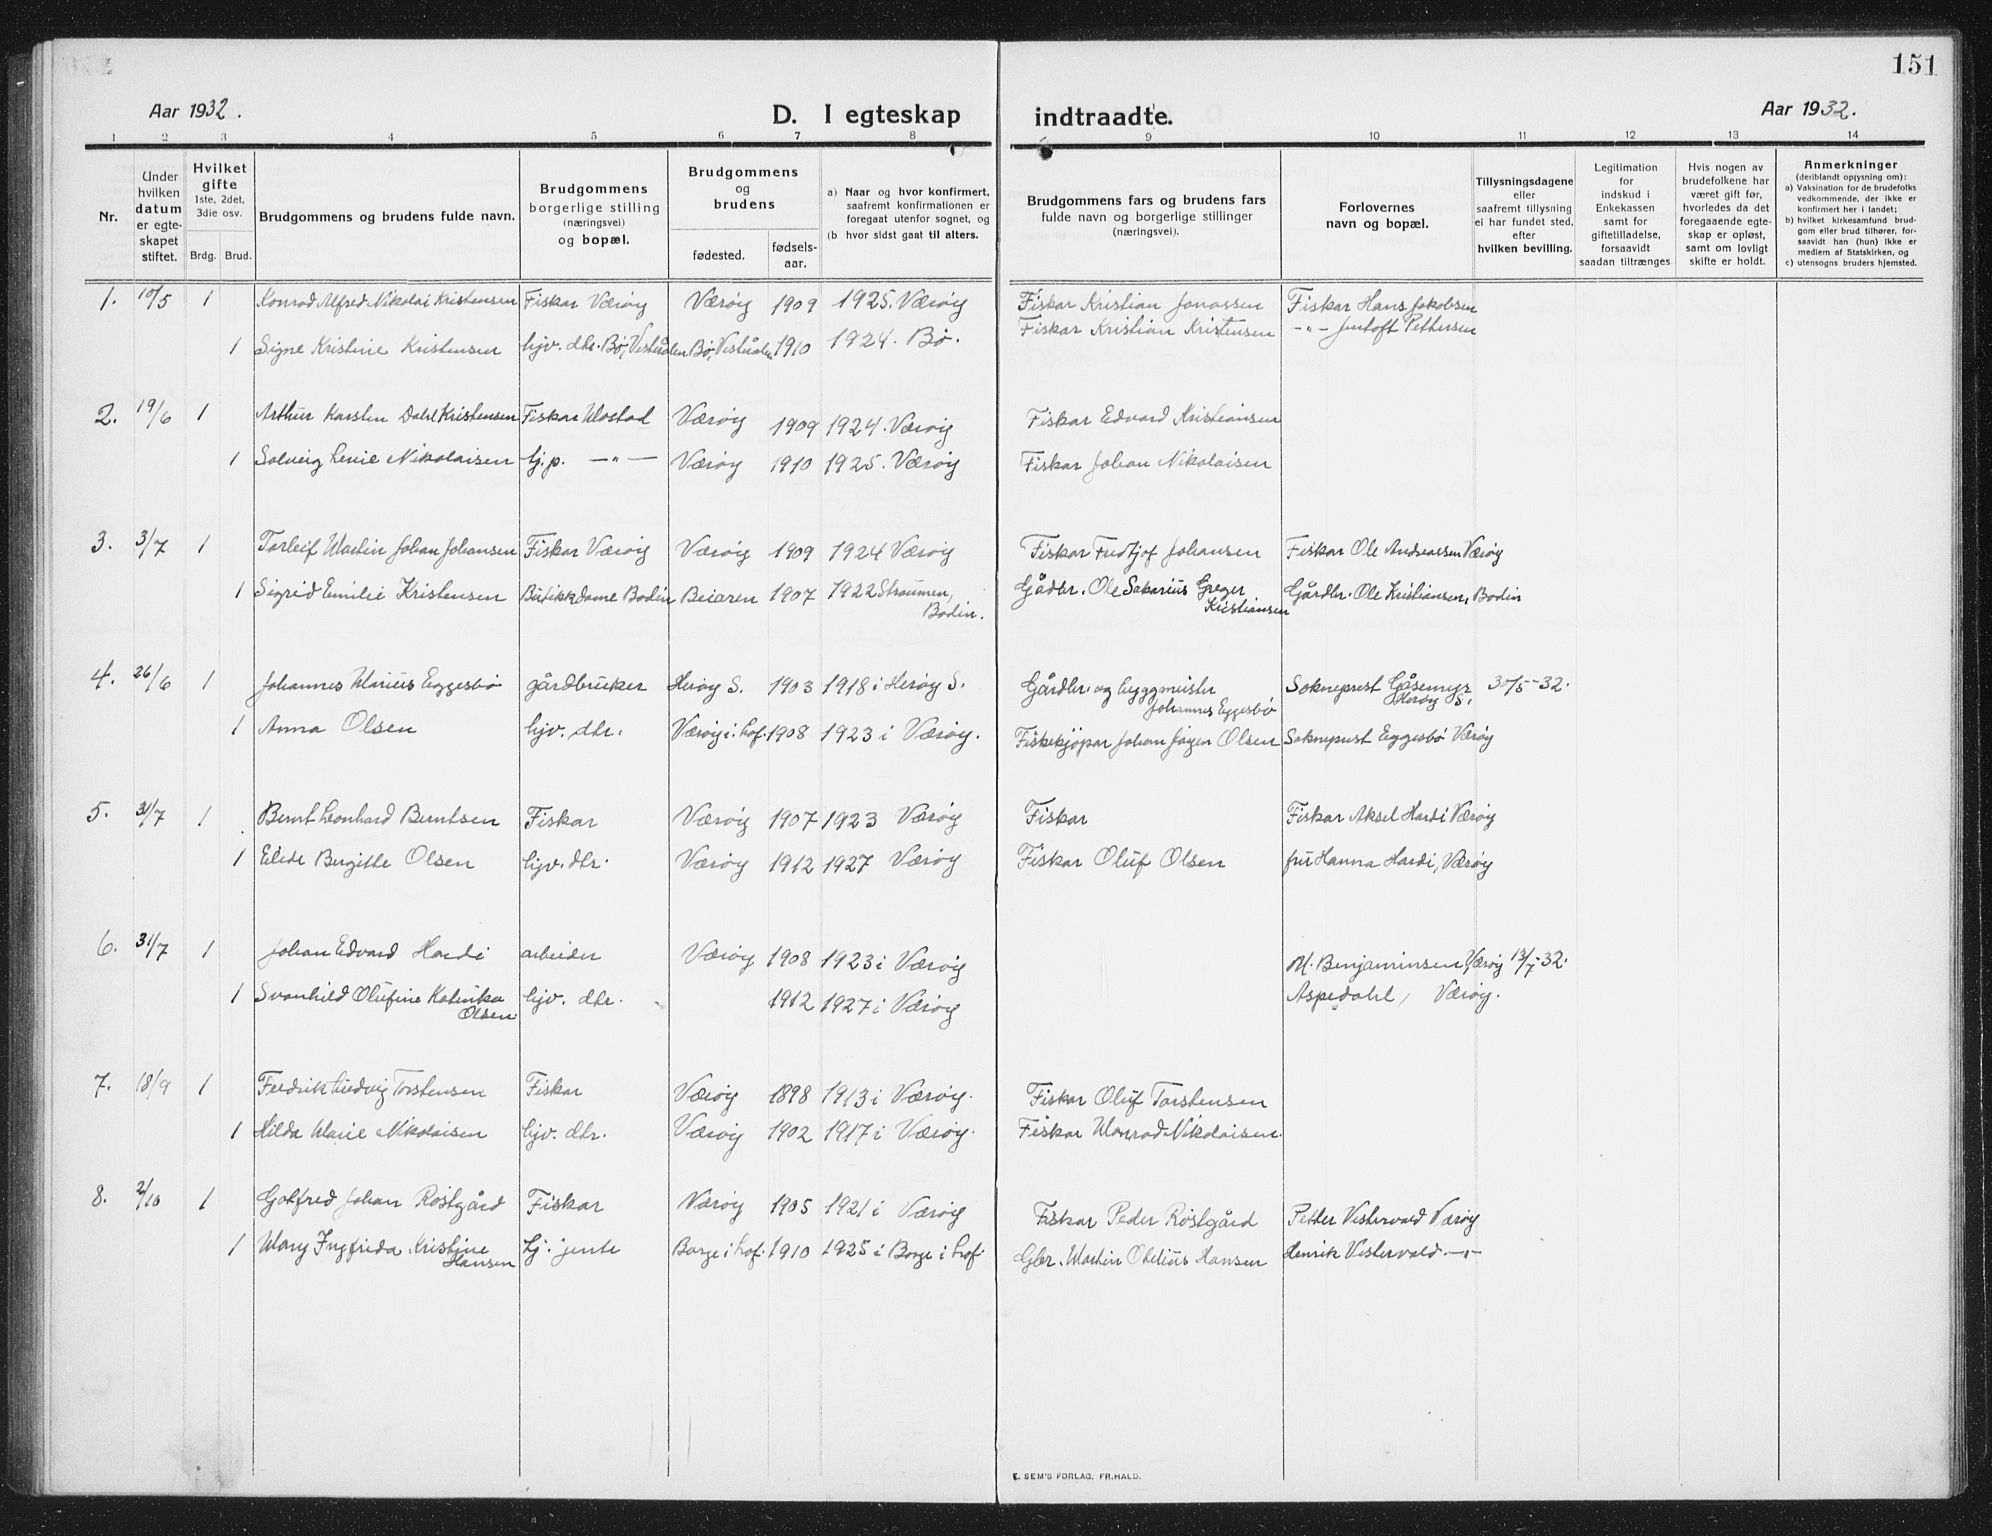 151
Aar 1932.
D. I egteskap indtraadte.
Aar 1932.
1 2 3 4 5 6 7 8 9 10 11 12 13 14
Nr.
Under hvilken datum er egteskapet stiftet.
Hvilket gifte 1ste, 2det, 3die osv.
Brdg. Brud.
Brudgommens og brudens fulde navn.
Brudgommens borgerlige stilling (næringsvei) og bopæl.
Brudgommens og brudens
fødested. fødsels-aar.
a) Naar og hvor konfirmert, saafremt konfirmationen er foregaat utenfor sognet, og
(b hvor sidst gaat til alters.
Brudgommens fars og brudens fars fulde navn og borgerlige stillinger (næringsvei).
Forlovernes navn og bopæl.
Tillysningsdagene eller saafremt tillysning ei har fundet sted, efter hvilken bevilling.
Legitimation for indskud i Enkekassen samt for giftetilladelse, forsaavidt saadan tiltrænges
Hvis nogen av brudefolkene har været gift før, hvorledes da det foregaaende egteskap er opløst, samt om lovligt skifte er holdt.
Anmerkninger (deriblandt oplysning om):
a) Vaksination for de brudefolks vedkommende, der ikke er konfirmert her i landet;
b) hvilket kirkesamfund brudgom eller brud tilhører, forsaavidt han (hun) ikke er medlem af Statskirken, og
c) utensogns bruders hjemsted.
1. 10/5 1 Konrad Alfred Nikolai Kristensen Fiskar Værøy Værøy 1909 1925. Værøy Fiskar Kristian Jonassen Fiskar Hans Jakobsen
1 Signe Kristine Kristensen hjv. dtr. Bø, Vesterålen Bø, Vesterålen 1910 1924. Bø. Fiskar Kristian Kristensen -"- Jentoft Pettersen
2. 19/6 1 Arthur Karsten Dahl Kristensen Fiskar Mostad Værøy 1909 1924. Værøy Fiskar Edvard Kristiansen
1 Solveig Lenie Nikolaisen hj.p. -"- Værøy 1910 1925. Værøy Fiskar Johan Nikolaisen
3. 3/7 1 Torleif Martin Johan Johansen Fiskar Værøy Værøy 1909 1924 Værøy Fiskar Fridtjof Johansen Fiskar Ole Andreassen Værøy
1 Sigrid Emilie Kristensen Butikkdame Bodin Beiaren 1907 1922 Straumen, Bodin. Gårdbr. Ole Sakarius Greger Kristiansen Gårdbr. Ole Kristiansen, Bodin
4. 26/6 1 Johannes Marius Eggesbø gårdbruker Herøy S. 1903 1918 i Herøy S. Gårdbr. og byggmeister Johannes Eggesbø Sokneprest Gåsemyr Herøy S. 30/5-32.
1 Anna Olsen hjv. dtr. Værøy i Lof. 1908 1923 i Værøy. Fiskekjøpar Johan Jørgen Olsen Sokneprest Eggesbø Værøy
5. 31/7 1 Bernt Leonhard Berntsen Fiskar Værøy 1907 1923 Værøy Fiskar Fiskar Aksel Hardi Værøy
1 Elide Birgitte Olsen hjv. dtr. Værøy 1912 1927 Værøy Fiskar Oluf Olsen fru Hanna Hardi, Værøy
6. 31/7 1 Johan Edvard Hardi arbeider Værøy 1908 1923 i Værøy M. Benjaminsen, Værøy 13/7-32.
1 Svanhild Olufine Katinka Olsen hjv. dtr. 1912 1927 i Værøy Aspedahl, Værøy.
7. 18/9 1 Fredrik Ludvig Torstensen Fiskar Værøy 1898 1913 i Værøy. Fiskar Oluf Torstensen
1 Hilda Marie Nikolaisen hjv. dtr. Værøy 1902 1917 i Værøy. Fiskar Monrad Nikolaisen.
8. 2/10 1 Gotfred Johan Røstgård Fiskar Værøy 1905 1921 i Værøy Fiskar Peder Røstgård Petter Vestervold Værøy
1 Mary Ingfrida Kristine Hansen hj. jente Borge i Lof. 1910 1925 i Borge i Lof. Gbr. Martin Obelius Hansen Henrik Vestervold -"-
E. SEM'S FORLAG, FR.HALD.